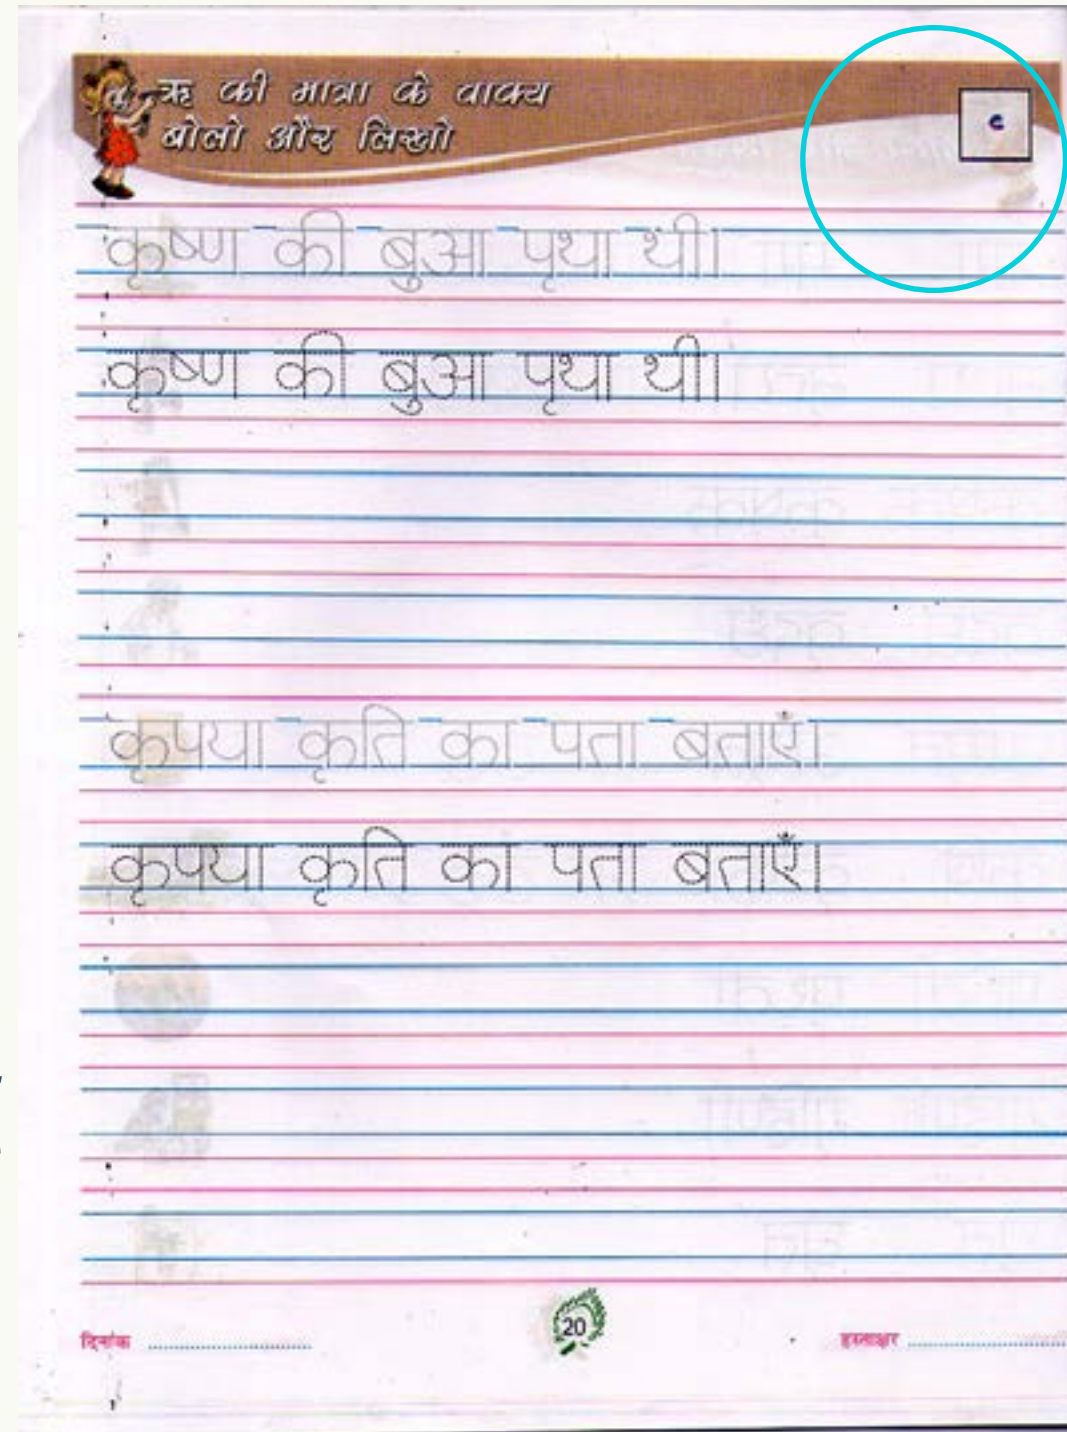 ऋ की मात्रा के वाक्य
बोलो और लिखो
ृ
कृष्ण की बुआ पृथा थी।
कृष्ण की बुआ पृथा थी।
कृपया कृति का पता बताएँ।
कृपया कृति का पता बताएँ।
20
दिनांक ........................................
हस्ताक्षर ........................................